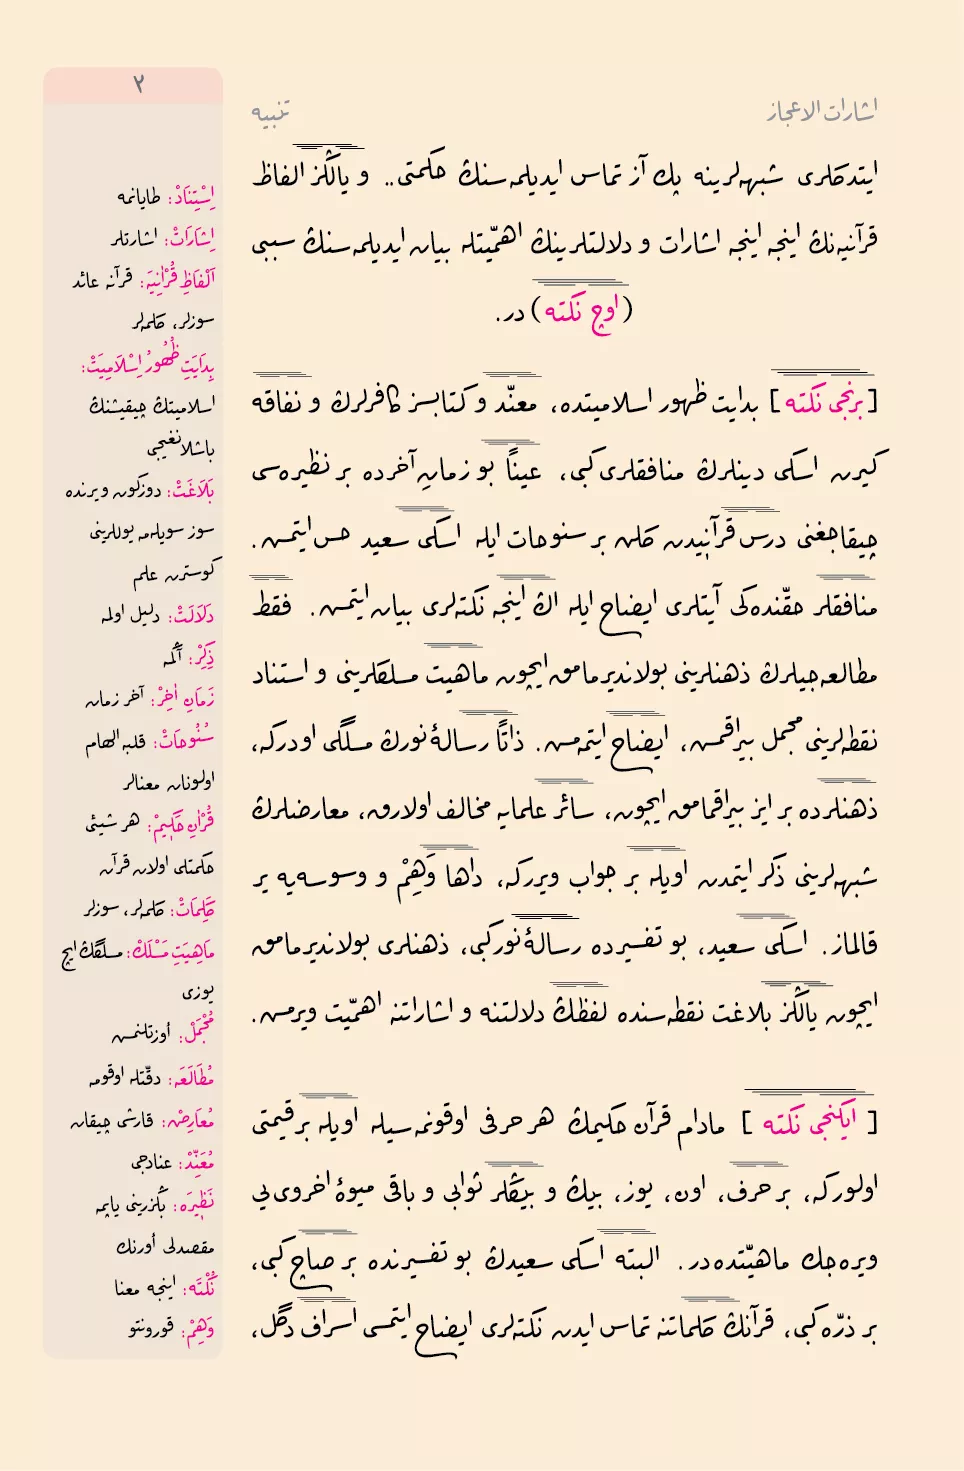 ٢
اشارات الاعجاز
تنبيه
ايتدكلرى شبهه‌لرينه پك آز تماس ايديلمه‌سنڭ حكمتى.. و يالڭز الفاظ
قرآنيه‌نڭ اينجه اينجه اشارات و دلالتلرينڭ اهمّيتله بيان ايديلمه‌سنڭ سببى
(اوچ نكته) در.
[برنجى نكته] بدايت ظهور اسلاميتده، معنّد و كتابسز كافرلرڭ و نفاقه
كيرن اسكى دينلرڭ منافقلرى كبى، عيناً بو زمانِ آخرده بر نظيره‌سى
چيقاجغنى درس قرآنيدن كلن بر سنوحات ايله اسكى سعيد حس ايتمس.
منافقلر حقّنده‌كى آيتلرى ايضاح ايله اڭ اينجه نكته‌لرى بيان ايتمس. فقط
مطالعه‌جيلرڭ ذهنلرينى بولانديرمامق ايچون ماهيت مسلكلرينى و استناد
نقطه‌لرينى مجمل بيراقمس، ايضاح ايتمه‌مس. ذاتاً رسالۀ نورڭ مسلگى اودركه،
ذهنلرده بر ايز بيراقمامق ايچون، سائر علمايه مخالف اولارق، معارضلرڭ
شبهه‌لرينى ذكر ايتمدن اويله بر جواب ويرركه، داها وَهِمْ و وسوسه‌يه ير
قالماز. اسكى سعيد، بو تفسيرده رسالۀ نور كبى، ذهنلرى بولانديرمامق
ايچون يالڭز بلاغت نقطه‌سنده لفظڭ دلالتنه و اشاراتنه اهمّيت ويرمس.
[ايكنجى نكته] مادام قرآن حكيمڭ هر حرفى اوقونمه‌سيله اويله بر قيمتى
اولوركه، بر حرف، اون، يوز، بيڭ و بيڭلر ثوابى و باقى ميوۀ اخروى‌يى
ويره‌جك ماهيّتده‌در. البته اسكى سعيدڭ بو تفسيرنده بر صاچ كبى،
بر ذرّه كبى، قرآنڭ كلماتنه تماس ايدن نكته‌لرى ايضاح ايتمسى اسراف دگل،
اِسْتِنَادْ: طايانمه
اِشَارَاتْ: اشارتلر
اَلْفَاظِ قُرْاٰنِيَه: قرآنه عائد
سوزلر، كلمه‌لر
بِدَايَتِ ظُهُورُ اِسْلَامِيَتْ:
اسلاميتڭ چيقيشنڭ
باشلانغيجى
بَلَاغَتْ: دوزگون ويرنده
سوز سويله‌مه يوللرينى
كوسترن علم
دَلَالَتْ: دليل اولمه
ذِكِرْ: آڭمه
زَمَانِ اٰخِرْ: آخر زمان
سُنُوحَاتْ: قلبه الهام
اولونان معنالر
قُرْاٰنِ حَكِيمْ: هر شيئى
حكمتلى اولان قرآن
كَلِمَاتْ: كلمه‌لر، سوزلر
مَاهِيَتِ مَسْلَكْ: مسلگڭ ايچ
يوزى
مُجْمَلْ: أوزتلنمس
مُطَالَعَه: دقّتله اوقومه
مُعَارِضْ: قارشى چيقان
مُعَنِّدْ: عنادجى
نَظِيرَه: بڭزرينى ياپمه
مقصدلى أورنك
نُكْتَه: اينجه معنا
وَهِمْ: قورونتو